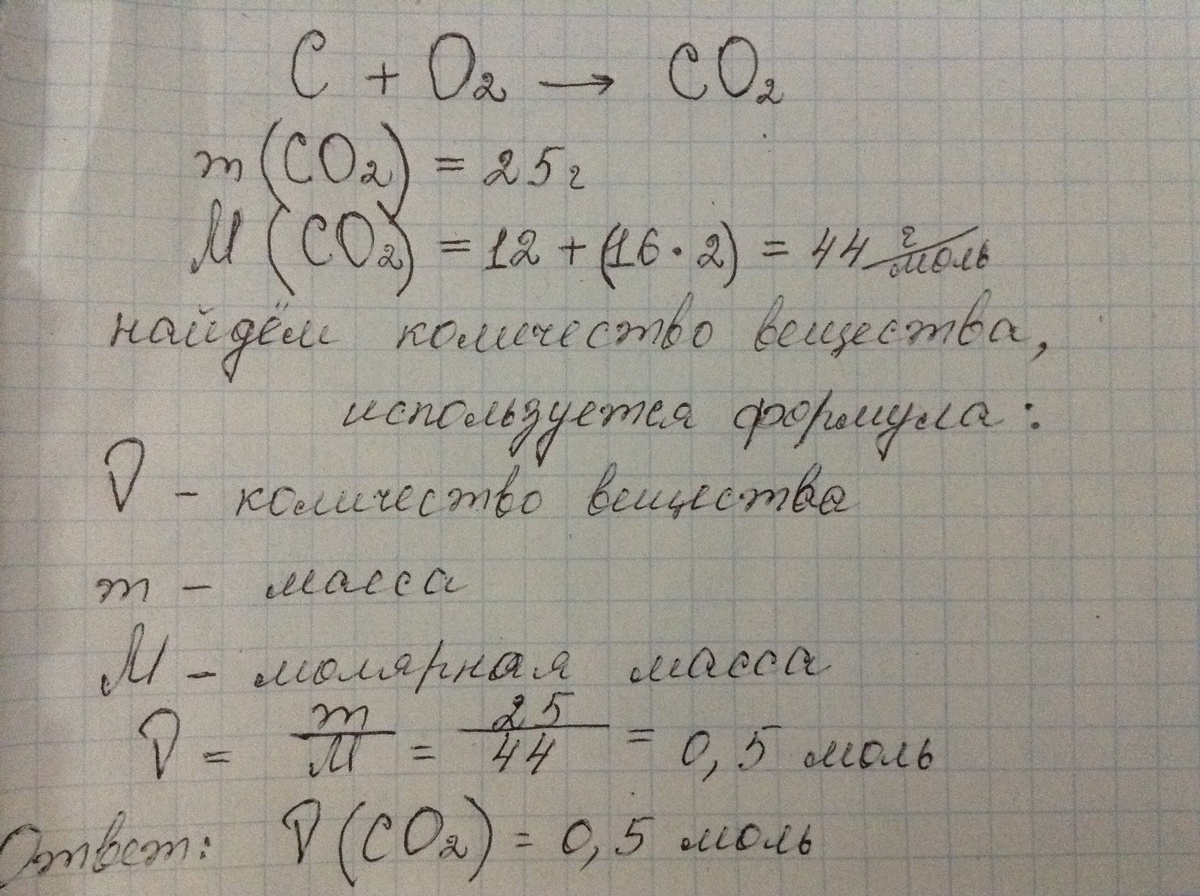 C + O₂ → CO₂
m (CO₂) = 25г
M (CO₂) = 12 + (16 · 2) = 44 г/моль
найдём количество вещества,
используется формула:
ν - количество вещества
m - масса
M - молярная масса
ν = m/M = 25/44 = 0,5 моль
Ответ: ν (CO₂) = 0,5 моль